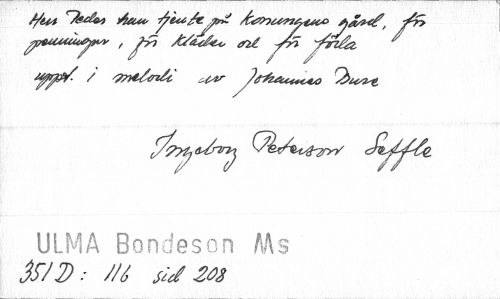 Herr Peder han tjente på Konungens gård, för
penningar, för kläder och för föda
uppt. i melodi av Johannes Bure
Ingeborg Peterson Seffle
ULMA Bondeson Ms
351 D: 116 sid 208